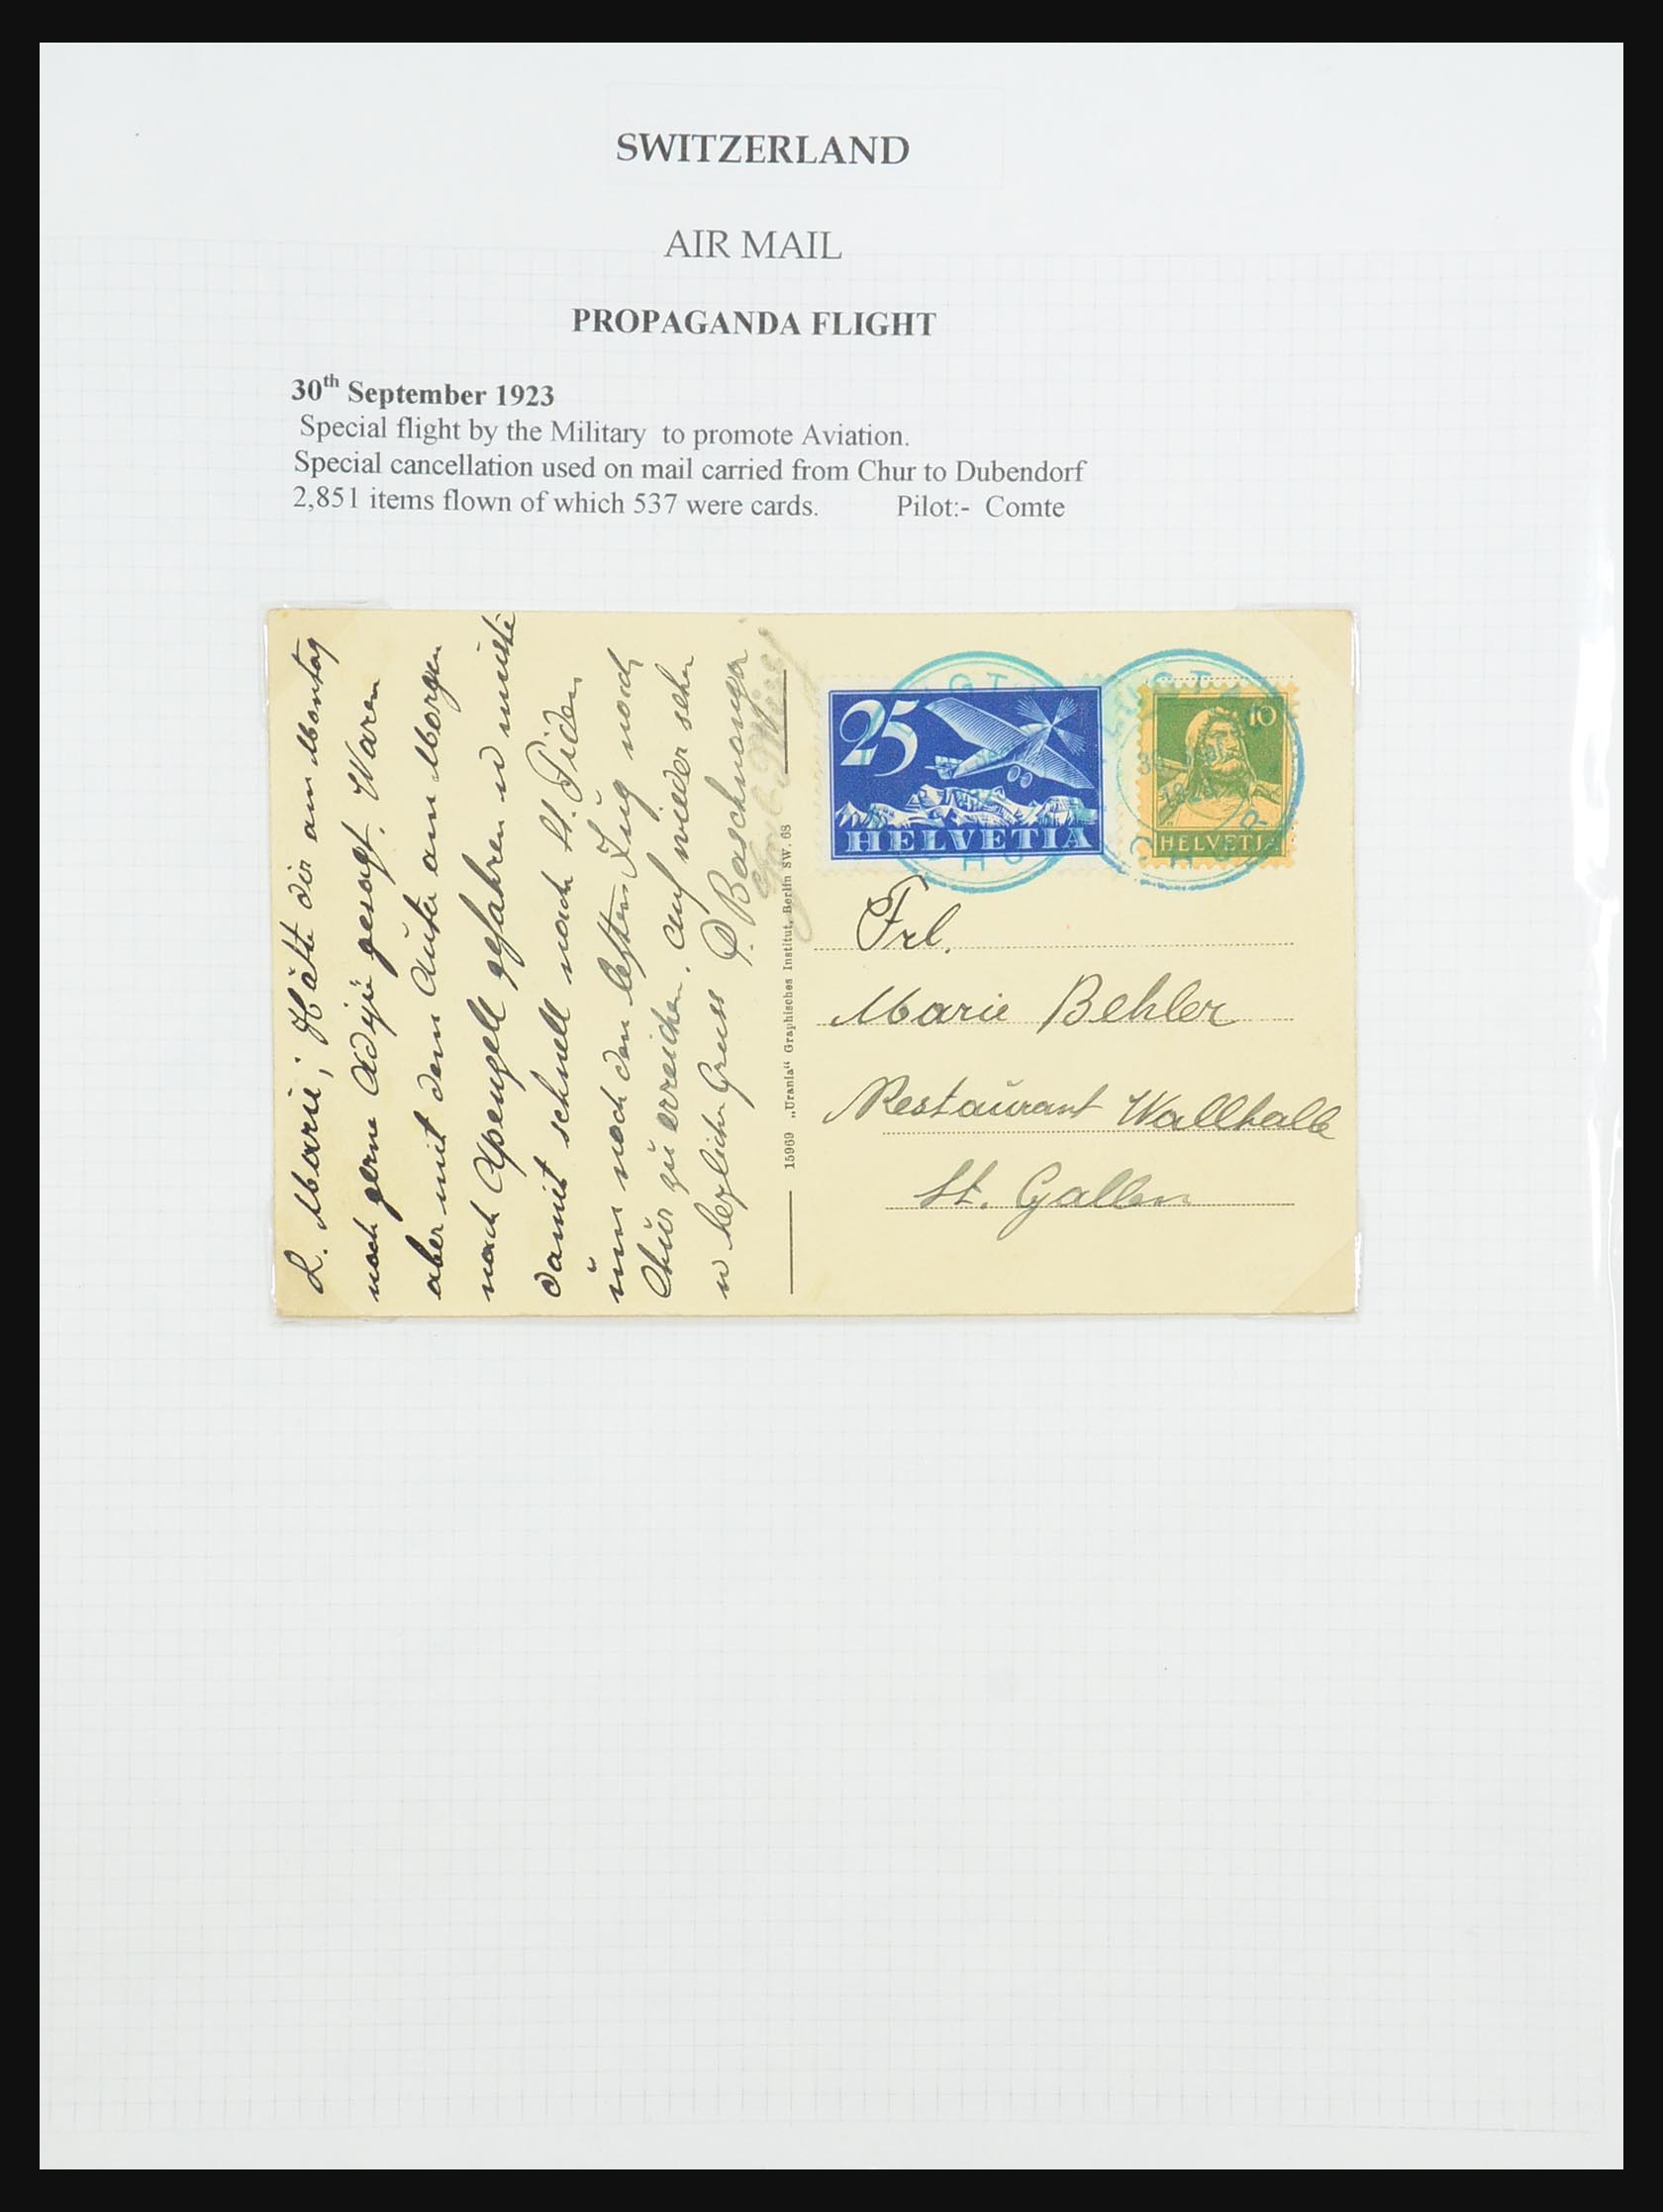 SWITZERLAND
AIR MAIL
PROPAGANDA FLIGHT
30th September 1923
Special flight by the Military to promote Aviation.
Special cancellation used on mail carried from Chur to Dubendorf
2,851 items flown of which 537 were cards. Pilot:- Comte
L. Marie; Hätte dir am Montag
noch gerne Adije gesagt. Waren
aber mit dem Auto am Morgen
nach Apenzell gefahren u mußte
damit schnell nach St.
um noch den letzten Zug nach
Chur zu erreichen. Auf wieder sehn
u herzliche Gruss P.
15969 „Urania“ Graphisches Institut, Berlin SW. 68
25
HELVETIA
10
HELVETIA
CHUR
Frl.
Marie Behler
Restaurant Wallhalle
St. Gallen